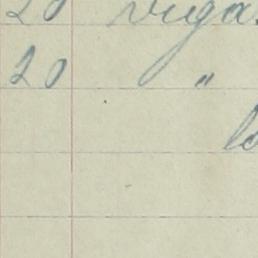 20 viga.
20 "